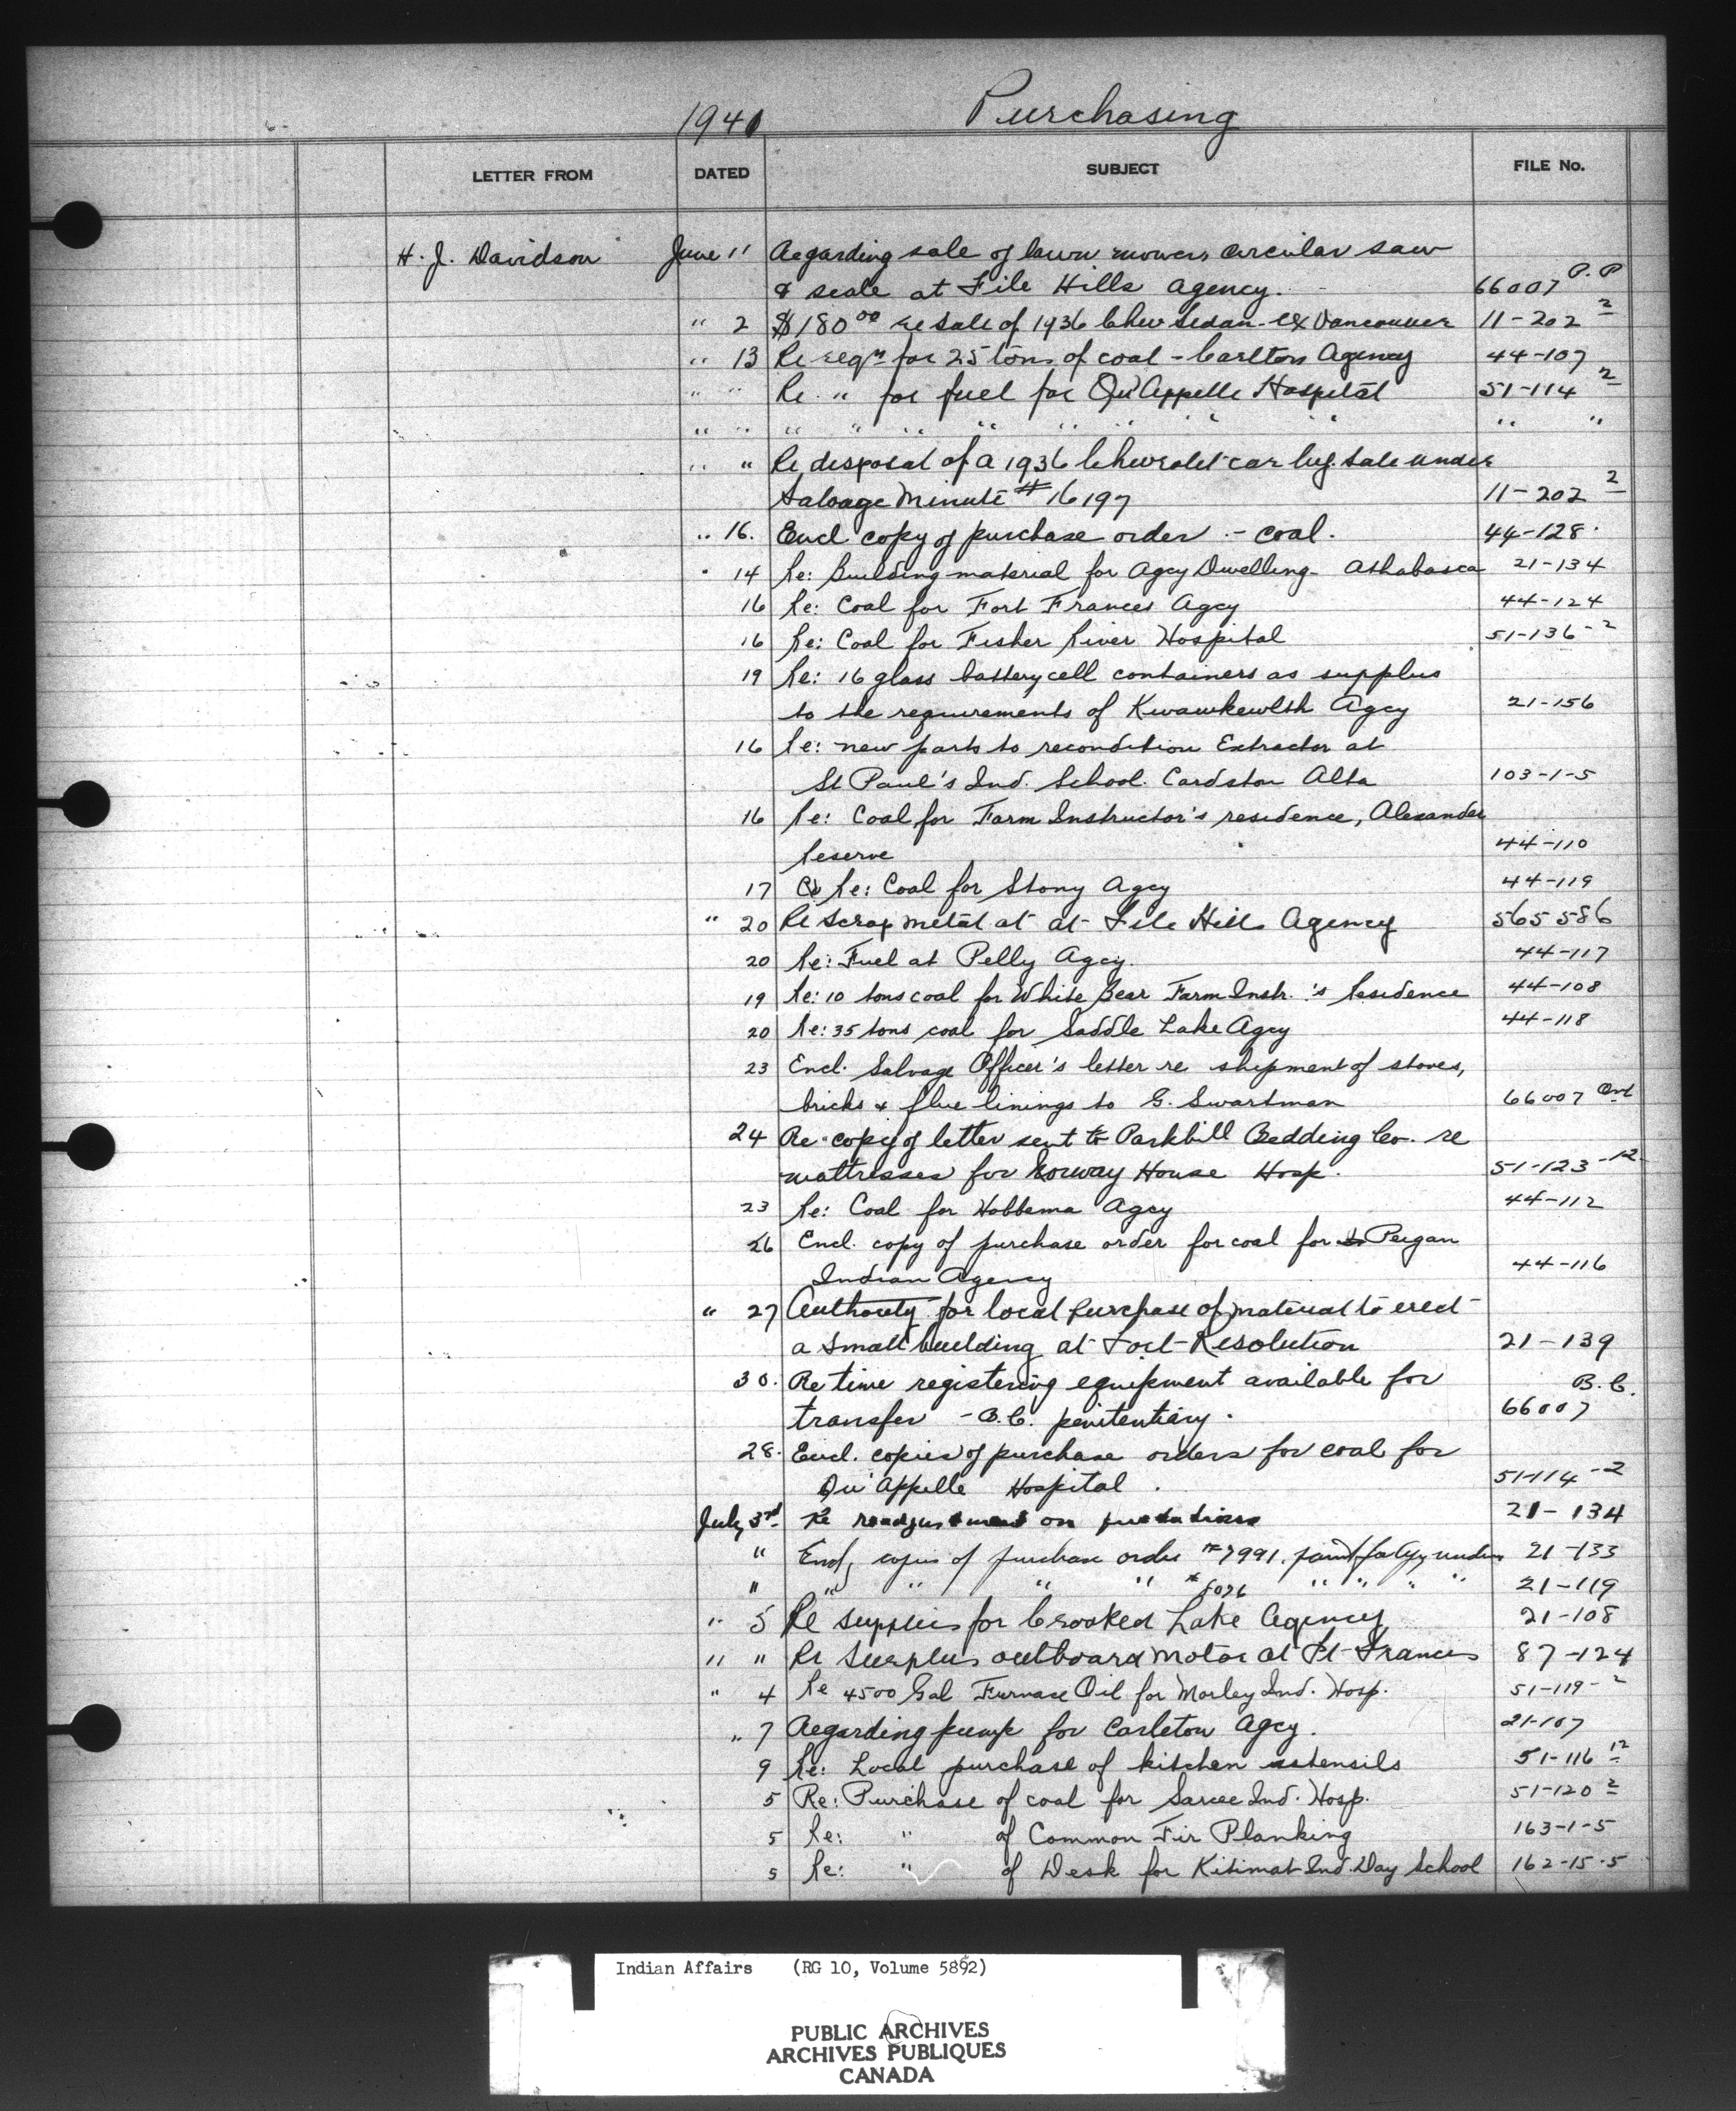 1941 Purchasing
LETTER FROM DATED SUBJECT FILE No.
H. J. Davidson June 11 Regarding sale of lawn mowers circular saw
& scale at File Hills Agency. 66007 P.P
" 2 $180.00 re sale of 1936 Chev Sedan - ex Vancouver 11-202 2
" 13 Re reqn for 25 tons of coal - Carlton Agency 44-107
" " Re " for fuel for Qu'Appelle Hospital 51-114 2
" " " " " " " " " " " "
" " Re disposal of a 1936 Chevrolet car by sale under
Salvage Minute #16197 11-202 2
" 16. Encl. copy of purchase order - coal. 44-128
" 14 Re: Building material for Agcy Dwelling - Athabasca 21-134
16 Re: Coal for Fort Frances Agcy 44-124
16 Re: Coal for Fisher River Hospital 51-136-2
19 Re: 16 glass battery cell containers as supplus
to the requirements of Kwawkewlth Agcy 21-156
16 Re: new parts to recondition Extractor at
St Paul's Ind. School. Cardston Alta 103-1-5
16 Re: Coal for Farm Instructor's residence, Alexander
Reserve 44-110
17 Re: Coal for Stony Agcy 44-119
" 20 Re scrap metal at at File Hills Agency 565586
20 Re: Fuel at Pelly Agcy. 44-117
19 Re: 10 tons coal for White Bear Farm Instr.'s Residence 44-108
20 Re: 35 tons coal for Saddle Lake Agcy 44-118
23 Encl. Salvage Officer's letter re shipment of stoves,
bricks & flue linings to G. Swartman 66007 Ont
24 Re copy of letter sent to Parkhill Bedding Co. re
mattresses for Norway House Hosp. 51-123-12
23 Re: Coal for Hobbema Agcy 44-112
26 Encl. copy of purchase order for coal for Peigan
Indian Agency 44-116
" 27 Authority for local purchase of material to erect
a small building at Fort Resolution 21-139
30. Re time registering equipment available for B.C.
transfer - B.C. penitentiary. 66007
28. Encl. copies of purchase orders for coal for
Qu'Appelle Hospital. 51-114-2
July 3rd Re readjustment on 21-134
" Encl, copies of purchase order #7991. paint 21-133
" " " " " " " " " 21-119
" 5 Re supplies for Crooked Lake Agency 21-108
" " Re surplus outboard motor at Ft Frances 87-124
" 4 Re 4500 Gal Furnace Oil for Morley Ind. Hosp. 51-119-2
" 7 Regarding pump for Carleton Agcy. 21-107
9 Re: Local purchase of kitchen utensils 51-116 12
5 Re: Purchase of coal for Sarcee Ind. Hosp. 51-120 2
5 Re: " of Common Fir Planking 163-1-5
5 Re: " of Desk for Kitimat Ind. Day School 162-15-5
Indian Affairs (RG 10, Volume 5892)
PUBLIC ARCHIVES
ARCHIVES PUBLIQUES
CANADA